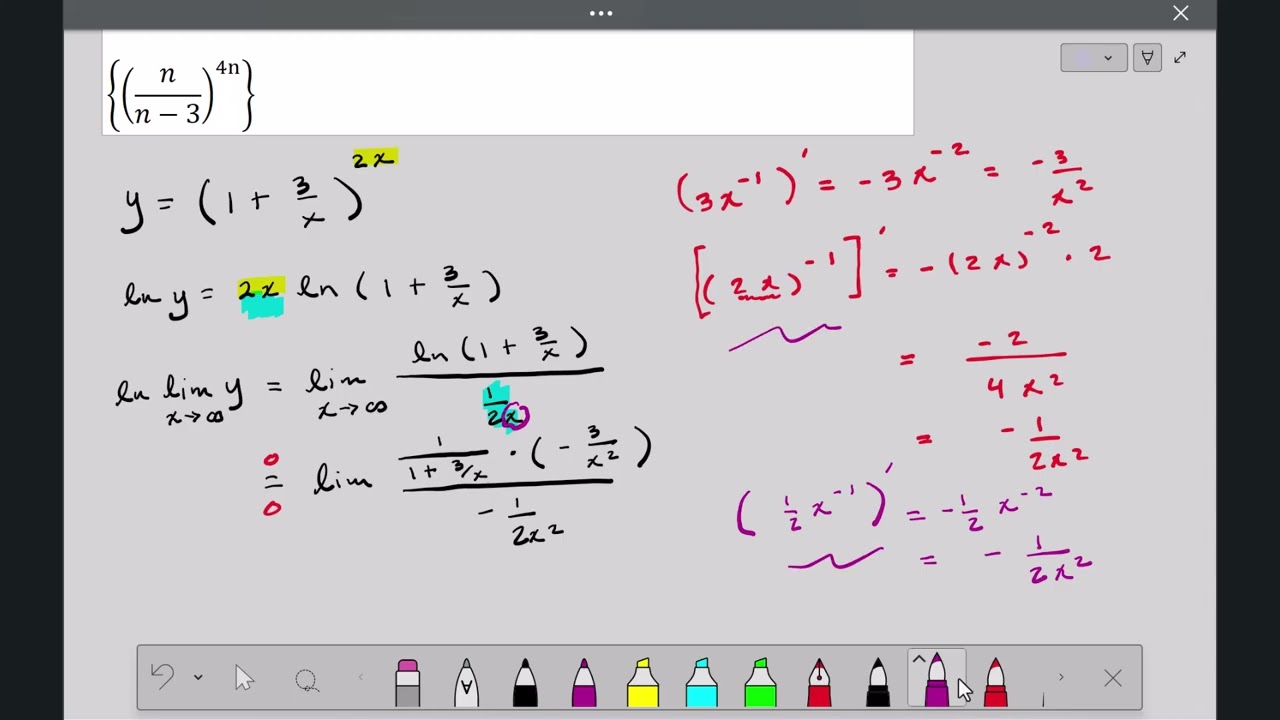 {(n/(n − 3))^4n}
y = (1 + 3/x)^2x
ln y = 2x ln (1 + 3/x)
ln lim x→∞ y = lim x→∞ ln (1 + 3/x) / (1/2x)
0 = 0 lim (1/(1 + 3/x) · (− 3/x²)) / (− 1/2x²)
(3x⁻¹)' = − 3x⁻² = −3/x²
[(2x)⁻¹]' = − (2x)⁻² · 2
= −2/4x²
= − 1/2x²
(1/2 x⁻¹)' = −1/2 x⁻²
= − 1/2x²